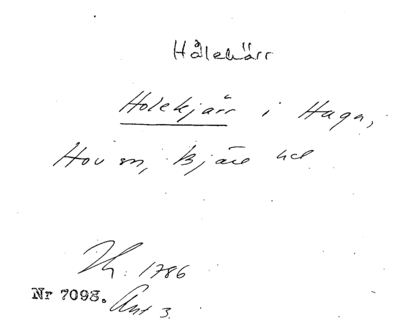 Hålekärr
Holekjärr i Haga,
Hov sn, Bjäre hd
Th. 1786
Nr 7098. Ant 3.